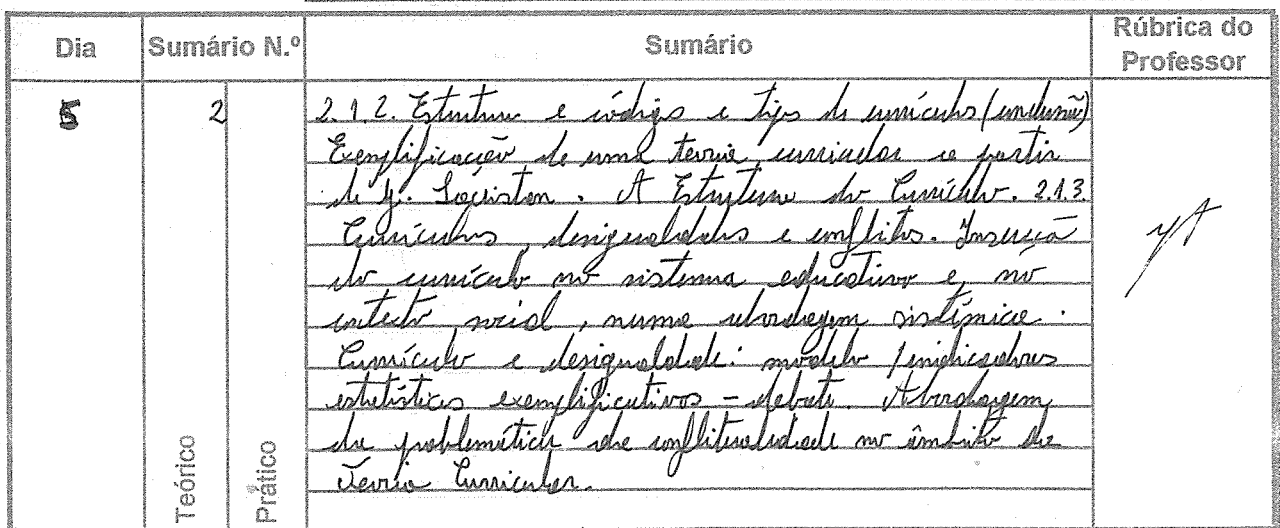 Dia Sumário N.º Sumário Rúbrica do Professor
5 2 2.1.2. Estrutura e códigos e tipos de currículos (conclusão)
Exemplificação de uma teoria curricular a partir
de . A Estrutura do Currículo. 2.1.3.
Currículos, desigualdades e conflitos. Inserção
do currículo no sistema educativo e, no
contexto social, numa abordagem sistémica.
Currículo e desigualdade: modelo / indicadores
estatísticos exemplificativos - debate. Abordagem
da problemática da conflitualidade no âmbito da
Teoria Curricular.
Teórico
Prático